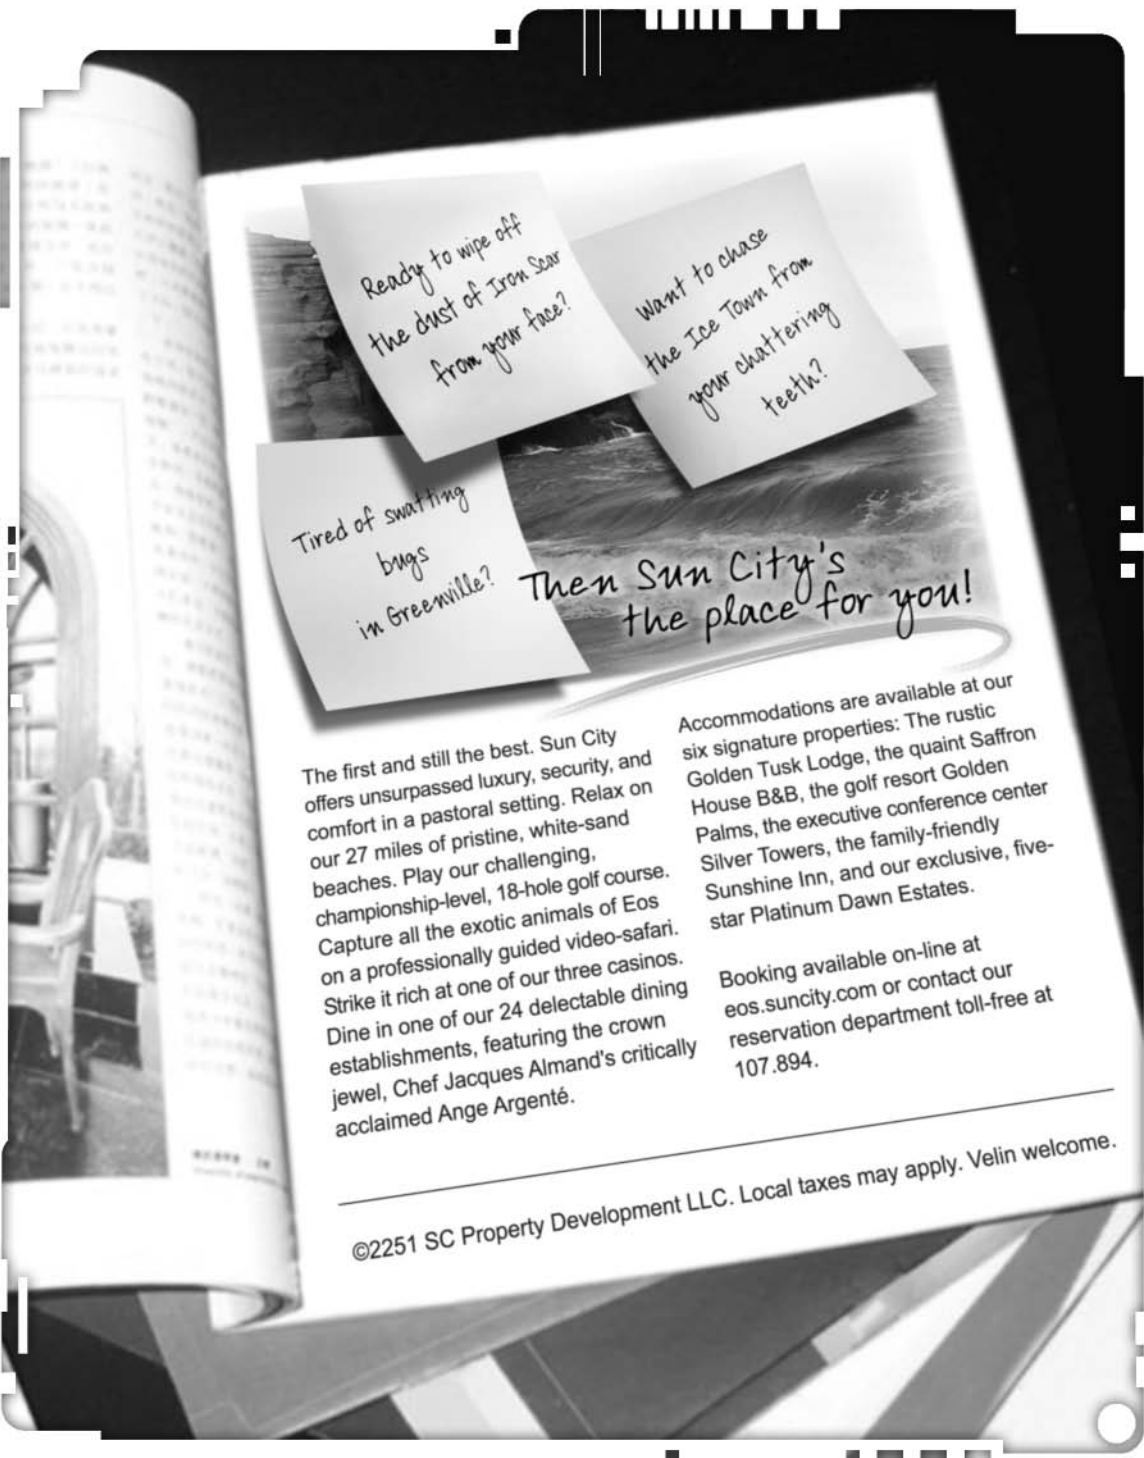 Ready to wipe off
the dust of Iron Scar
from your face?
Want to chase
the Ice Town from
your chattering
teeth?
Tired of swatting
bugs
in Greenville?
Then Sun City's
the place for you!
The first and still the best. Sun City
offers unsurpassed luxury, security, and
comfort in a pastoral setting. Relax on
our 27 miles of pristine, white-sand
beaches. Play our challenging,
championship-level, 18-hole golf course.
Capture all the exotic animals of Eos
on a professionally guided video-safari.
Strike it rich at one of our three casinos.
Dine in one of our 24 delectable dining
establishments, featuring the crown
jewel, Chef Jacques Almand's critically
acclaimed Ange Argenté.
Accommodations are available at our
six signature properties: The rustic
Golden Tusk Lodge, the quaint Saffron
House B&B, the golf resort Golden
Palms, the executive conference center
Silver Towers, the family-friendly
Sunshine Inn, and our exclusive, five-
star Platinum Dawn Estates.
Booking available on-line at
eos.suncity.com or contact our
reservation department toll-free at
107.894.
©2251 SC Property Development LLC. Local taxes may apply. Velin welcome.